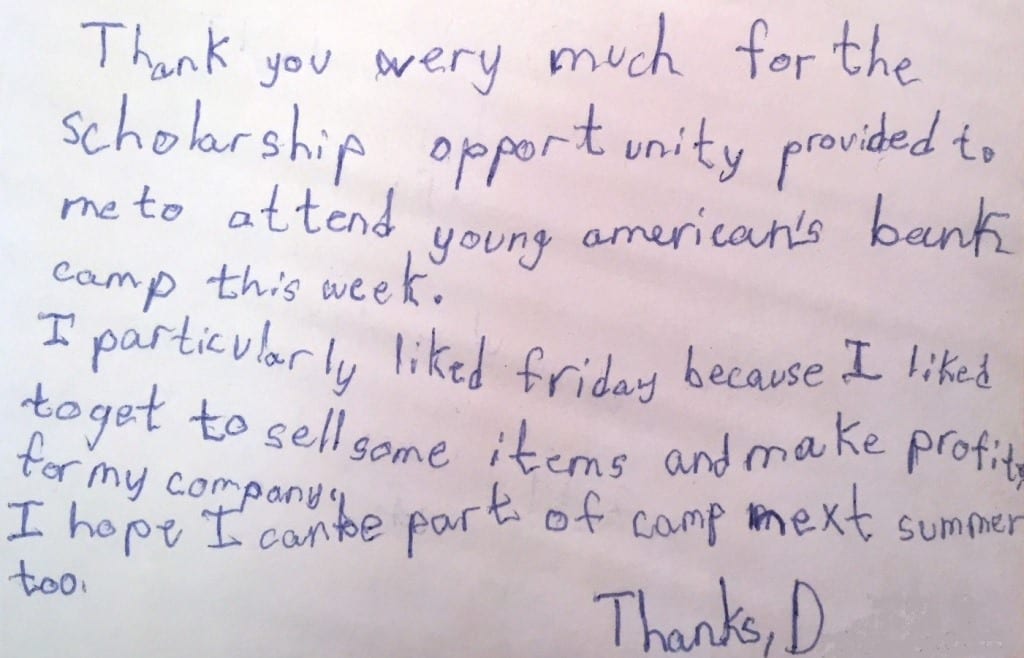 Thank you very much for the
scholarship opportunity provided to
me to attend young american's bank
camp this week.
I particularly liked friday because I liked
to get to sell some items and make profits
for my company.
I hope I can be part of camp next summer
too.
Thanks, D